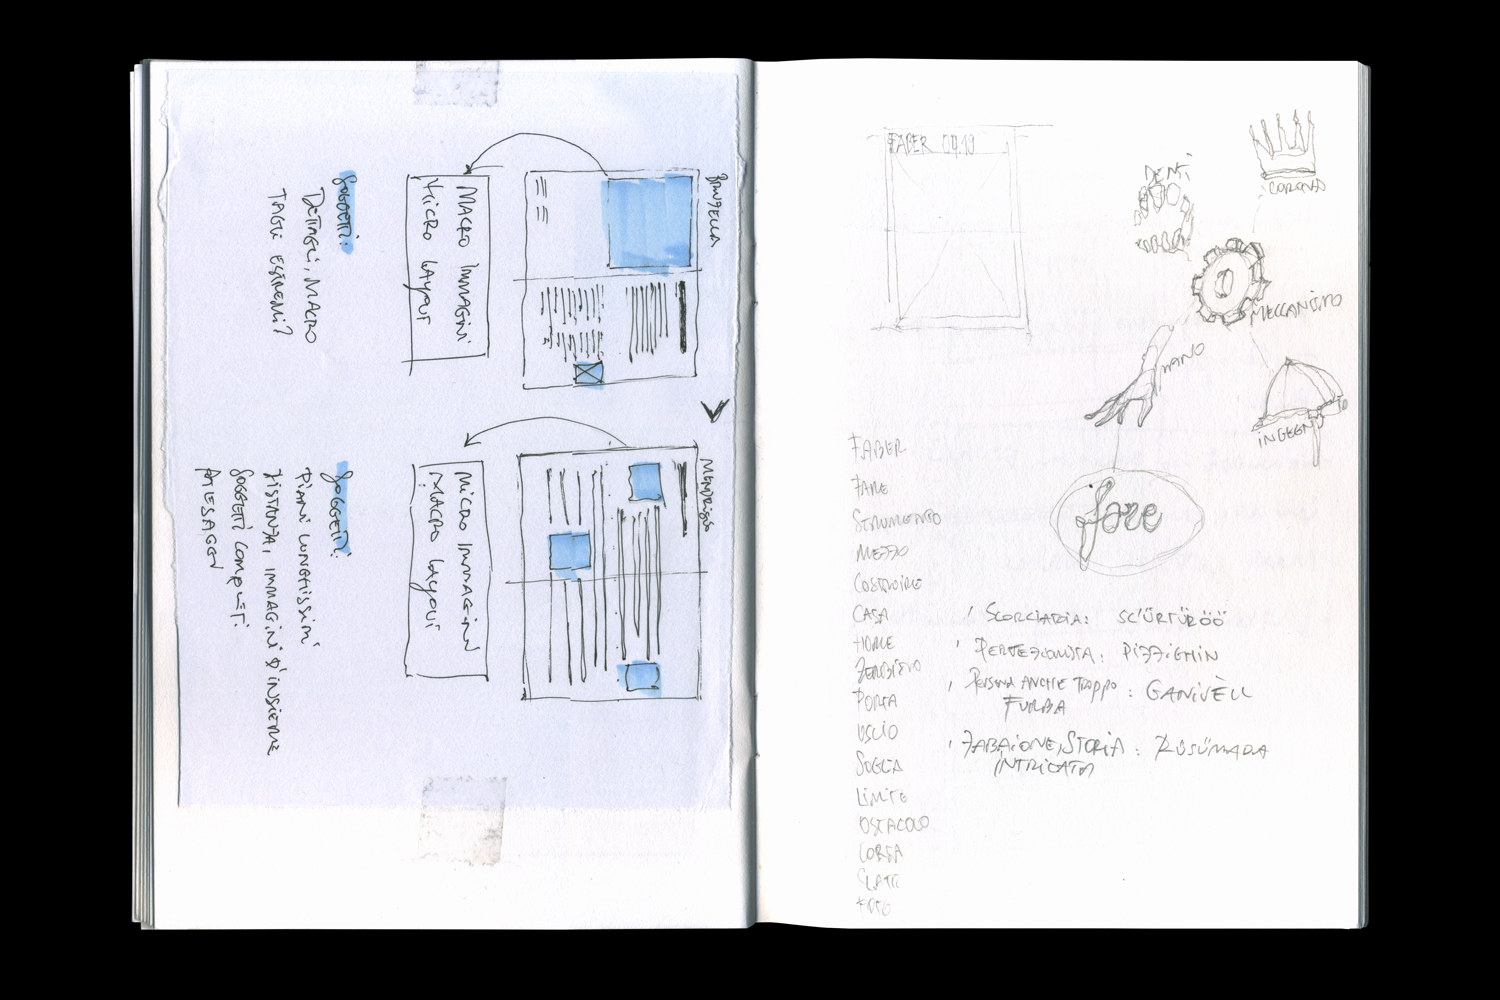 BRUZELLA
MACRO IMMAGINI
MICRO LAYOUT
SOGGETTI:
DETTAGLI, MACRO
TAGLI ESTREMI?
MENDRISIO
MICRO IMMAGINI
MACRO LAYOUT
SOGGETTI:
PIANI LUNGHISSIMI
DISTANZA, IMMAGINI D'INSIEME
SOGGETTI COMPLETI
PAESAGGI
FABER 04.19
DENTI
CORONA
MECCANISMO
MANO
INGEGNO
fare
FABER
FARE
STRUMENTO
MEZZO
COSTRUIRE
CASA
HOME
ZERBINO
PORTA
USCIO
SOGLIA
LIMITE
OSTACOLO
CORSA
SCORCIATOIA: SC'ÜRTÜRÖÖ
PERFEZIONISTA: PIZZIGHIN
PERSONA ANCHE TROPPO: GANIVÈLL
FURBA
ZABAIONE, STORIA: RÜSÜMADA
INTRICATA